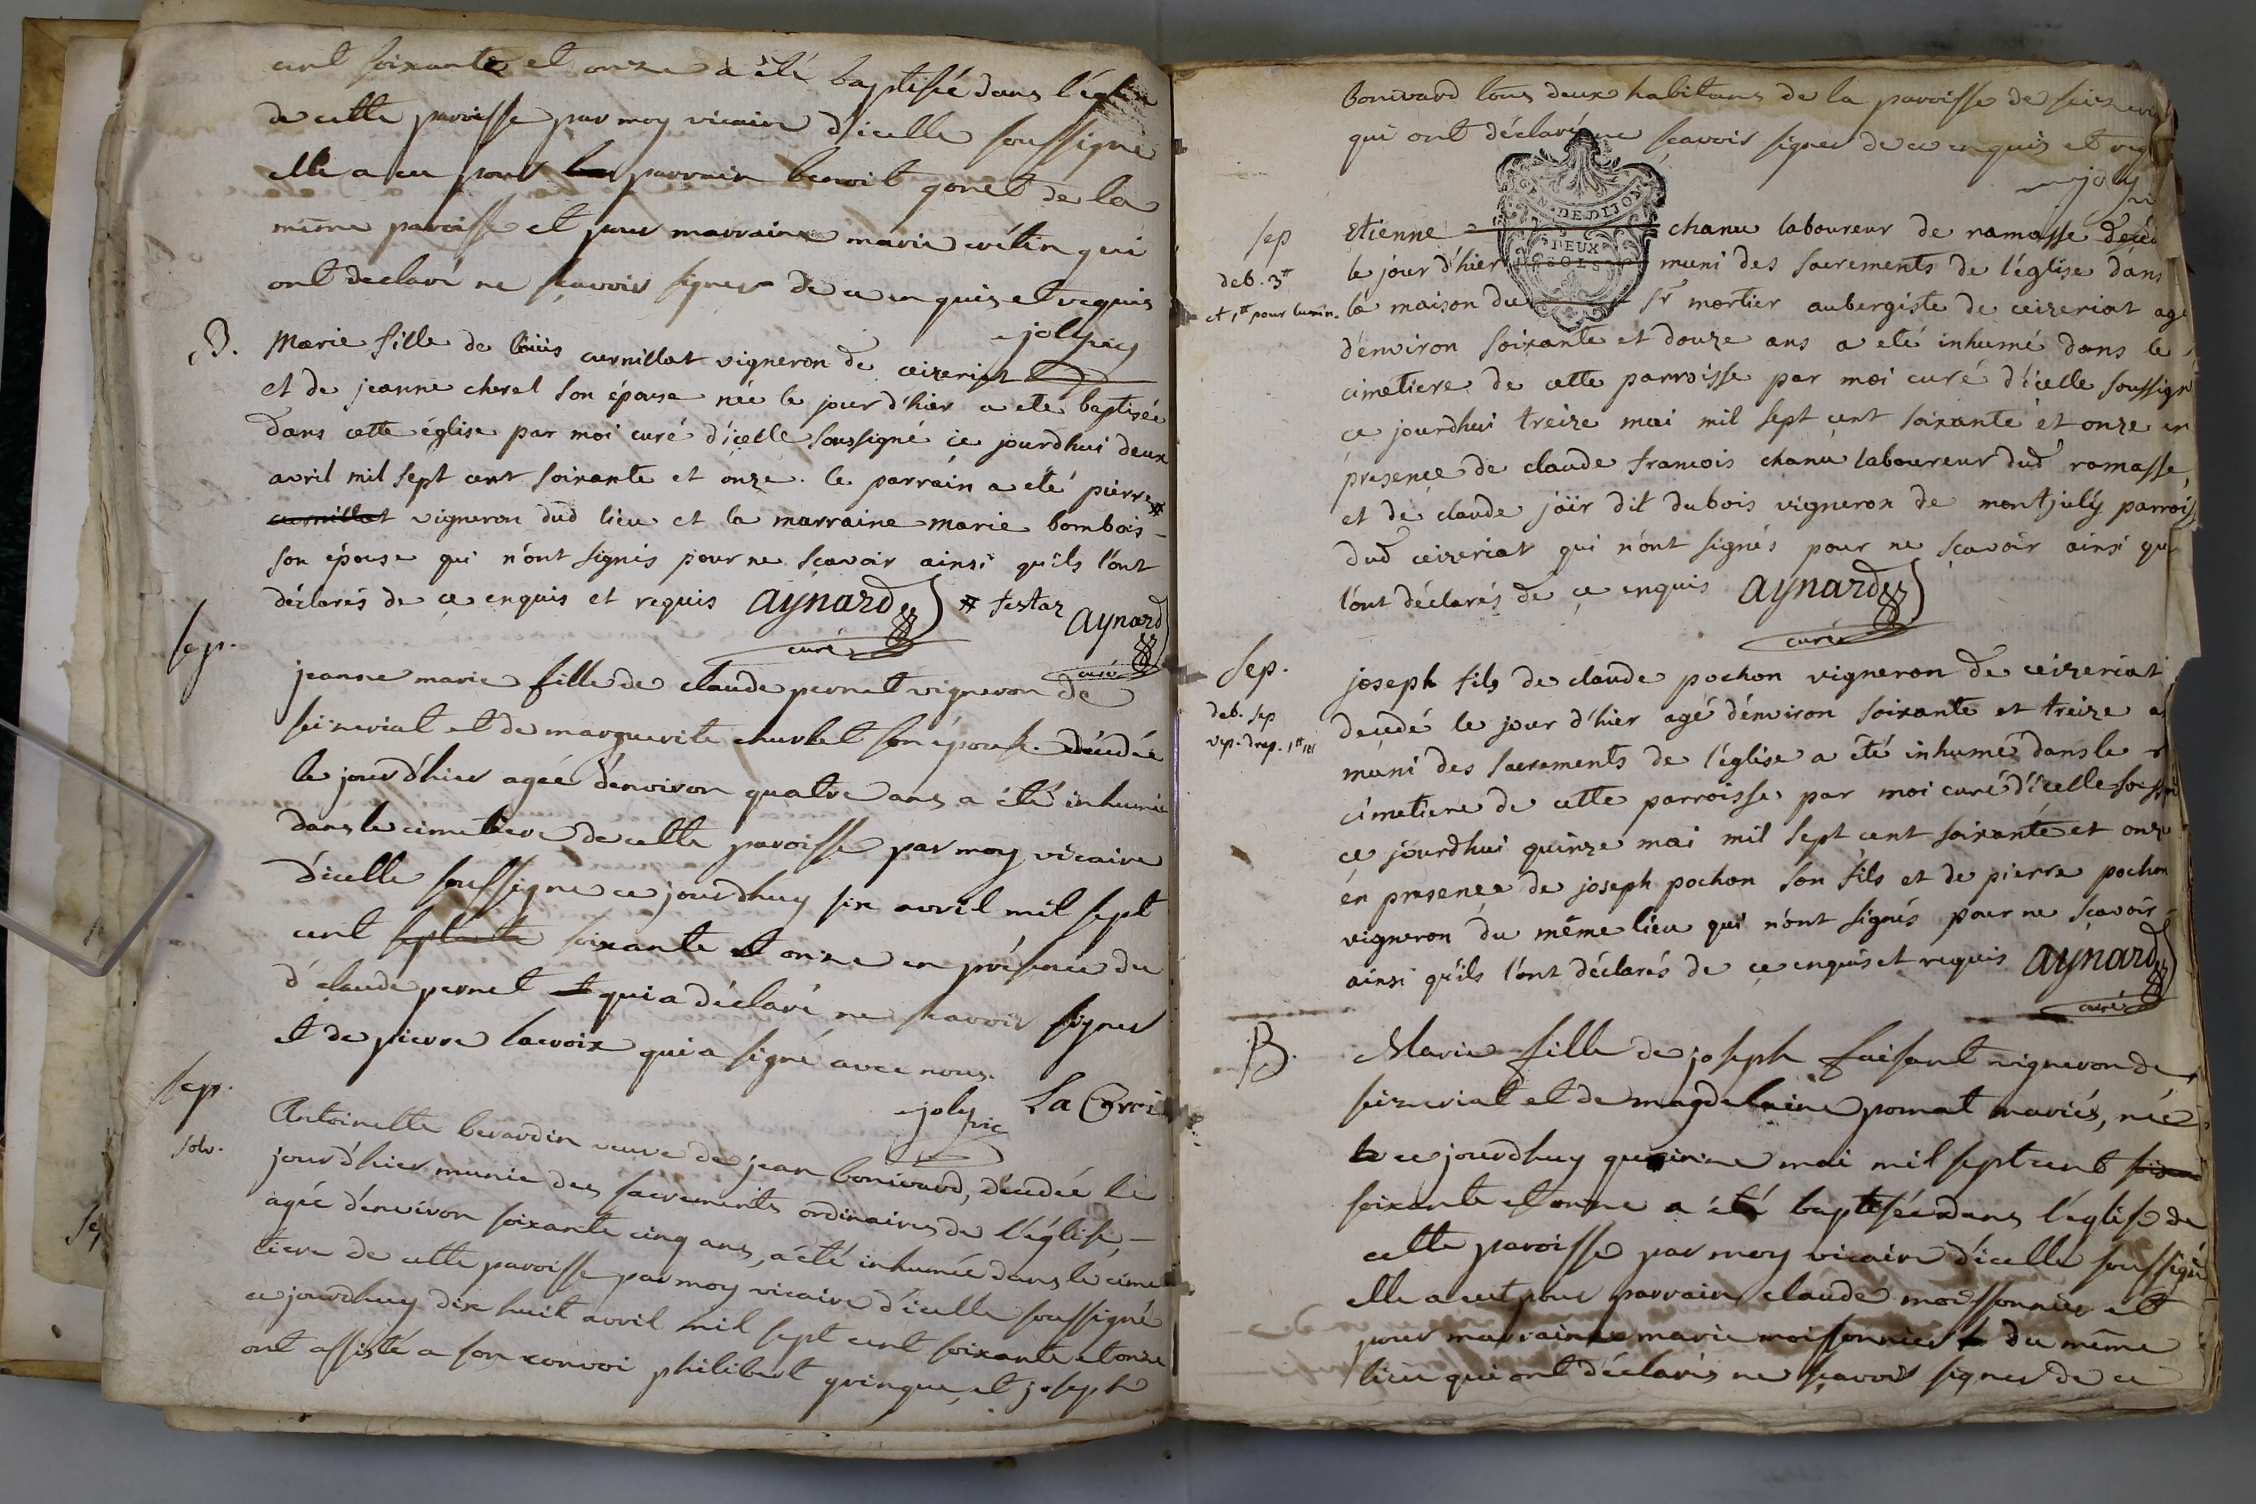 cent soixante et onze a été baptisée dans l'église
de cette paroisse par moy vicaire d'icelle soussigné
elle a eu pour parrain benoit gonet de la
même paroisse et pour marraine marie crétin qui
ont declaré ne sçavoir signer de ce enquis et requis
joly vic
B. Marie fille de loüis curnillat vigneron de ceizeriat
et de jeanne chevel son épouse née le jour d'hier a eté baptisée
dans cette église par moi curé d'icelle soussigné ce jourdhui deux
avril mil sept cent soixante et onze. le parrain a eté pierre #
curnillat vigneron dud lieu et la marraine marie bombois
son épouse qui n'ont signés pour ne sçavoir ainsi qu'ils l'ont
déclarés de ce enquis et requis aynard # festaz aynard
curé curé
sep.
jeanne marie fille de claude pernet vigneron de
seizeriat et de marguerite churlet son épouse décédée
le jour d'hier agée d'environ quatre ans a été inhumée
dans le cimetiere de cette paroisse par moy vicaire
d'icelle soussigné ce jourdhuy six avril mil sept
cent septante soixante et onze en présence du
d' claude pernet qui a déclaré ne sçavoir signer
et de pierre lacroix qui a signé avec nous.
joly vic La Croi
sep. Antoinette berardin veuve de jean bonivard, décédée le
solv. jour d'hier munie des sacrements ordinaires de l'église,
agée d'environ soixante cinq ans, a été inhumée dans le cime
tiere de cette paroisse par moy vicaire d'icelle soussigné
ce jourdhuy dix huit avril mil sept cent soixante et onze
ont assisté a son convoi philibert gringue, et joseph
Bonivard tous deux habitans de la paroisse de seizeri
qui ont déclaré ne sçavoir signer de ce enquis et req
joly
vi
GEN. DE DIJON
DEUX
SOLS
sep Etienne chanu laboureur de ramasse décé
deb. 3tt le jour d'hier muni des sacrements de l'église dans
et 1tt pour lumin. la maison du Sr mortier aubergiste de ceizeriat agé
d'environ soixante et douze ans a eté inhumé dans le
cimetiere de cette parroisse par moi curé d'icelle soussign
ce jourdhui treize mai mil sept cent soixante et onze en
presence de claude francois chanu laboureur dud ramasse,
et de claude joir dit dubois vigneron de montjuly parrois
dud ceizeriat qui n'ont signés pour ne sçavoir ainsi que
l'ont déclarés de ce enquis aynard
curé
Sep. joseph fils de claude pochon vigneron de ceizeriat
deb. sep décédé le jour d'hier agé d'environ soixante et treize a
muni des sacrements de l'église a été inhumé dans le
cimetiere de cette parroisse par moi curé d'icelle soussi
ce jourdhui quinze mai mil sept cent soixante et onze
en presence de joseph pochon son fils et de pierre pochon
vigneron du même lieu qui n'ont signés pour ne sçavoir
ainsi qu'ils l'ont déclarés de ce enquis et requis aynard
curé
B. Marie fille de joseph faisant vigneron de
seizeriat et de magdelaine pomat mariés, née
ce jourdhuy quinze mai mil sept cent
soixante et onze a été baptisée dans l'église de
cette paroisse par moy vicaire d'icelle soussigné
elle a eut pour parrain claude moissonnier et
pour marraine marie moissonnier du même
lieu qui ont déclarés ne sçavoir signer de ce